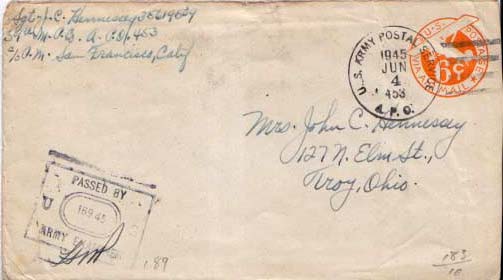 Sgt. J. C. Hennessey
M.R.S. A.P.O. 453
c/o P.M. San Francisco, Calif
U.S. ARMY POSTAL SERVICE
1945
JUN
4
453
A.P.O.
U.S. POSTAGE
VIA AIR MAIL
6¢
Mrs. John C. Hennessey
127 N. Elm St.,
Troy, Ohio.
PASSED BY
U
16945
ARMY
189
183
10